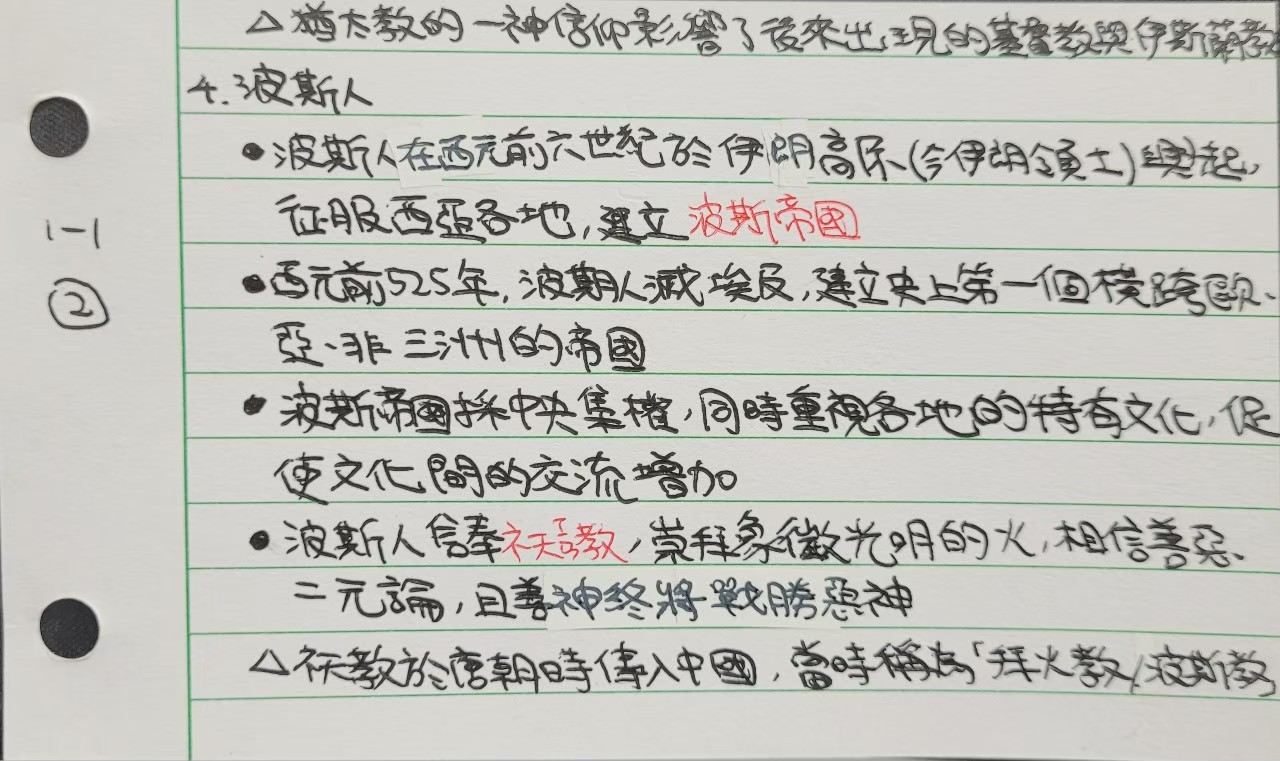 △猶太教的一神信仰影響了後來出現的基督教與伊斯蘭教
4.波斯人
•波斯人在西元前六世紀於伊朗高原(今伊朗領土)興起,
征服西亞各地,建立波斯帝國
•西元前525年,波斯人滅埃及,建立史上第一個橫跨歐、
1-1
②
亞、非三洲的帝國
•波斯帝國採中央集權,同時重視各地的特有文化,促
使文化間的交流增加
•波斯人信奉祆教,崇拜象徵光明的火,相信善惡
二元論,且善神終將戰勝惡神
△祆教於唐朝時傳入中國,當時稱為「拜火教/波斯教」